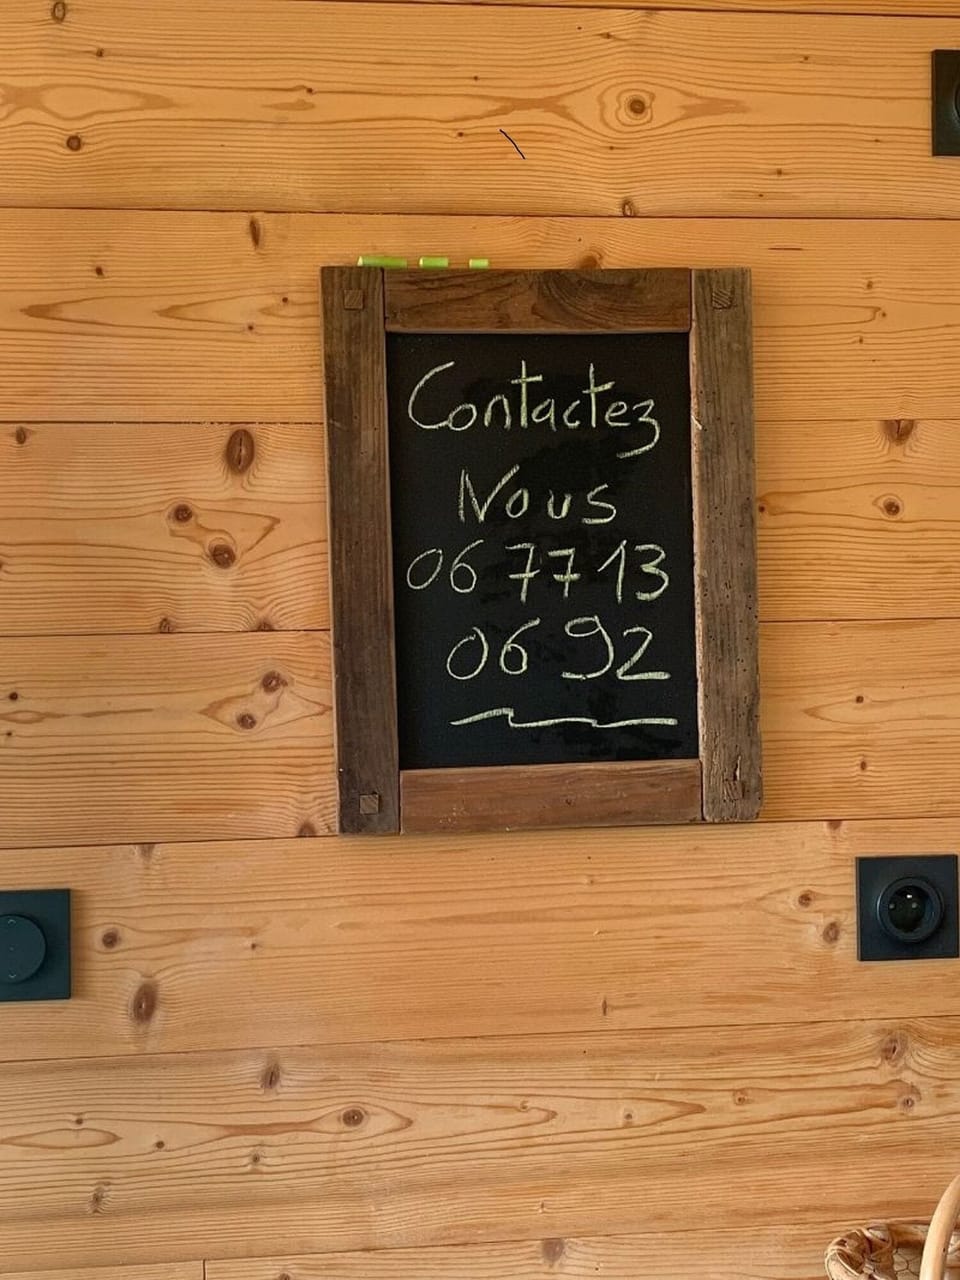 Contactez
Nous
06 77 13
06 92